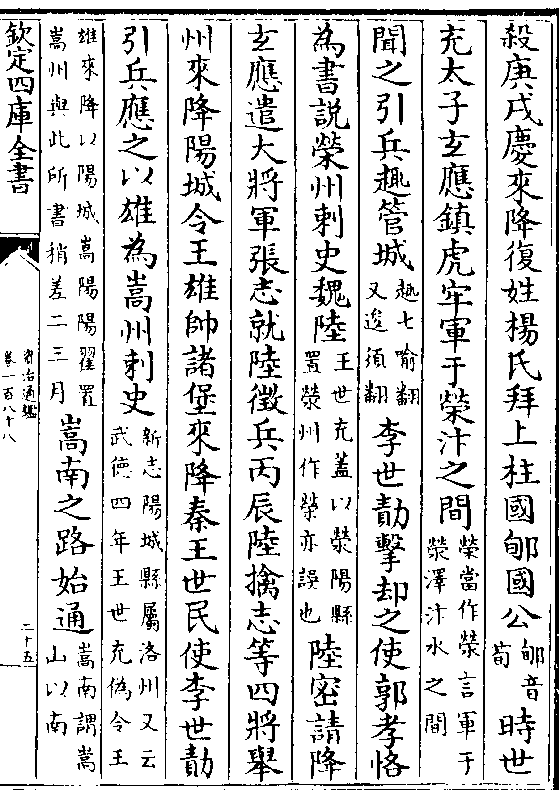 殺庚戌慶來降復姓楊氏拜上柱國郇國公郇音荀時世
充太子玄應鎮虎牢軍于榮汴之間榮當作滎言軍于滎澤汴水之間
聞之引兵趣管城趣七喻翻又逡須翻李世勣擊却之使郭孝恪
為書說榮州刺史魏陸王世充蓋以滎陽縣置榮州作榮亦誤也陸密請降
玄應遣大將軍張志就陸徵兵丙辰陸擒志等四將舉
州來降陽城令王雄帥諸堡來降秦王世民使李世勣
引兵應之以雄為嵩州刺史新志陽城縣屬洛州又云武德四年王世充偽令王
雄來降以陽城嵩陽陽翟置嵩州與此所書稍差二三月嵩南之路始通嵩南謂嵩山以南
欽定四庫全書
資治通鑑
卷一百八十八
二十五